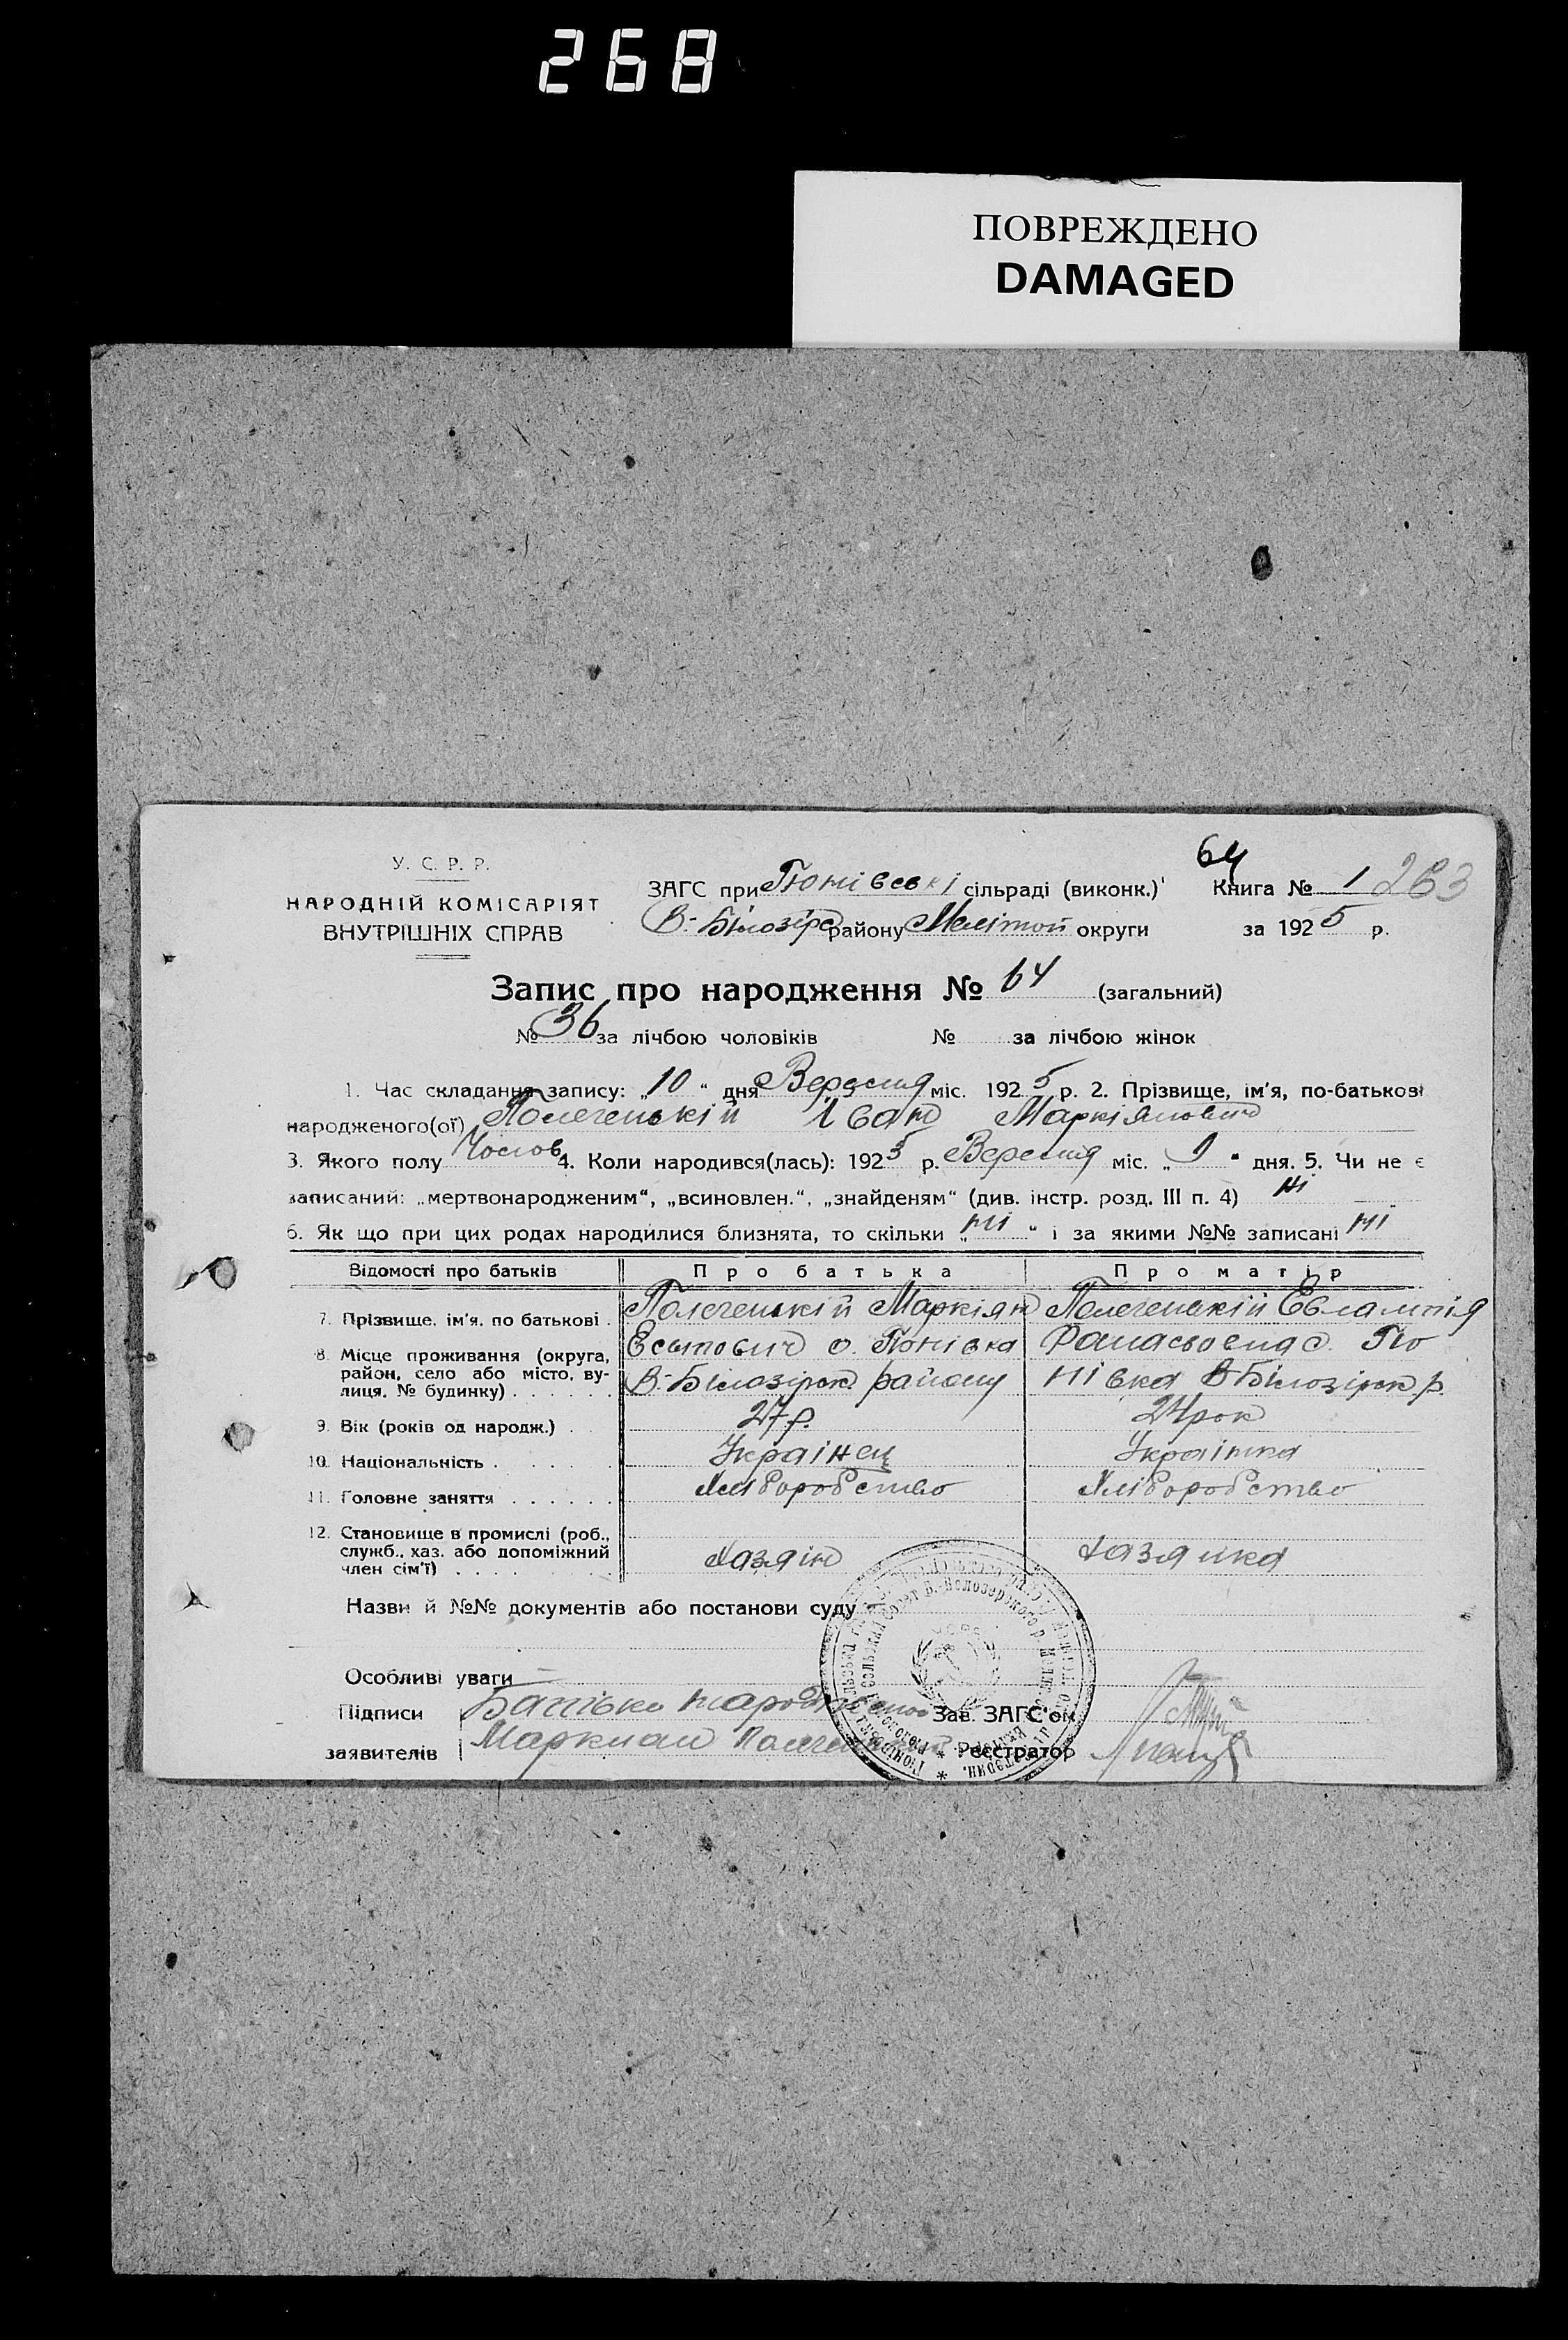 268
ПОВРЕЖДЕНО
DAMAGED
64
У. С. Р. Р.
НАРОДНІЙ КОМІСАРІЯТ
ВНУТРІШНІХ СПРАВ
ЗАГС при Гюнівськi сільраді (виконк.) Книга № 1 263
В-Білозірс району Мелітоп округи за 1925 р.
Запис про народження № 64 (загальний)
№ 36 за лічбою чоловіків № за лічбою жінок
1. Час складання запису: „10“ дня Вересня міс. 1925 р. 2. Прізвище, ім'я, по-батькові
народженого(ої) Полегенькій Іван Маркіянович
3. Якого полу Чолов. 4. Коли народився(лась): 1925 р. Вересня міс. „ “ дня. 5. Чи не є
записаний: „мертвонародженим“, „всиновлен.“, „знайденям“ (див. інстр. розд. III п. 4) ні
6. Як що при цих родах народилися близнята, то скільки „ні“ і за якими №№ записані ні
Відомості про батьків Про батька Про матір
7. Прізвище, ім'я, по батькові . Полегенькій Маркіян Полегенькій Евлампія
8. Місце проживання (округа, район, село або місто, вулиця, № будинку) . . . . . .
с. Гюнівка Гю
В.-Білозірськ району нівка В Білозірск р.
9. Вік (років од народж.) . 27 р. 24 рок
10. Національність . . . . . Українец Українка
11. Головне заняття . . . . . . Хліборобство Хліборобство
12. Становище в промислі (роб.,
служб., хаз. або допоміжний
член сім'ї) . . . . Хазяін Хазяйка
Назви й №№ документів або постанови суду
Особливі уваги
Підписи Батько народженого Зав. ЗАГС'ом
заявителів Маркиан Полегенький Реєстратор